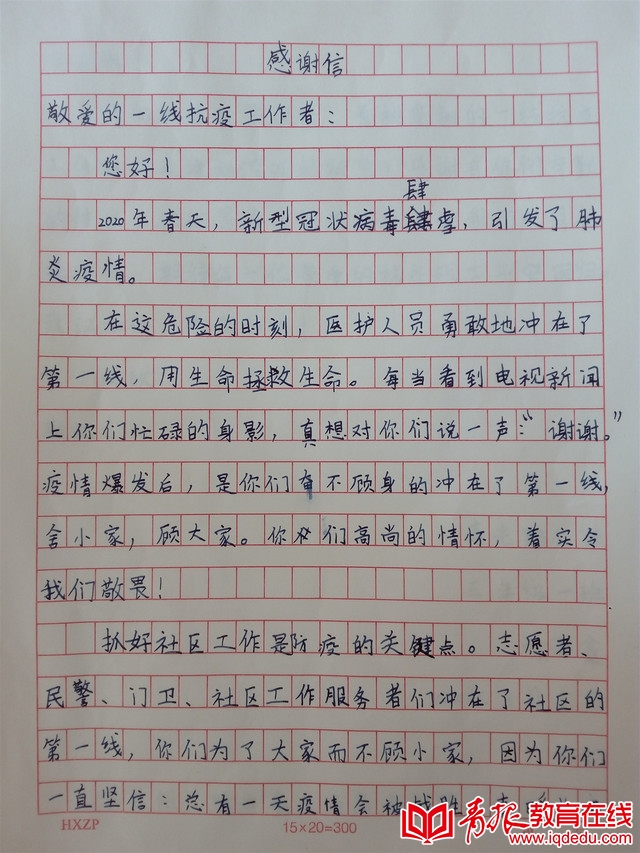 感谢信
敬爱的一线抗疫工作者：
您好！
肆
2020年春天，新型冠状病毒肆虐，引发了肺
炎疫情。
在这危险的时刻，医护人员勇敢地冲在了
第一线，用生命拯救生命。每当看到电视新闻
上你们忙碌的身影，真想对你们说一声：“谢谢。”
疫情爆发后，是你们奋不顾身的冲在了第一线，
舍小家，顾大家。你们高尚的情怀，着实令
我们敬畏！
抓好社区工作是防疫的关键点。志愿者、
民警、门卫、社区工作服务者们冲在了社区的
第一线，你们为了大家而不顾小家，因为你们
一直坚信：总有一天疫情会被战胜
HXZP
15×20=300
青报教育在线
www.iqdedu.com